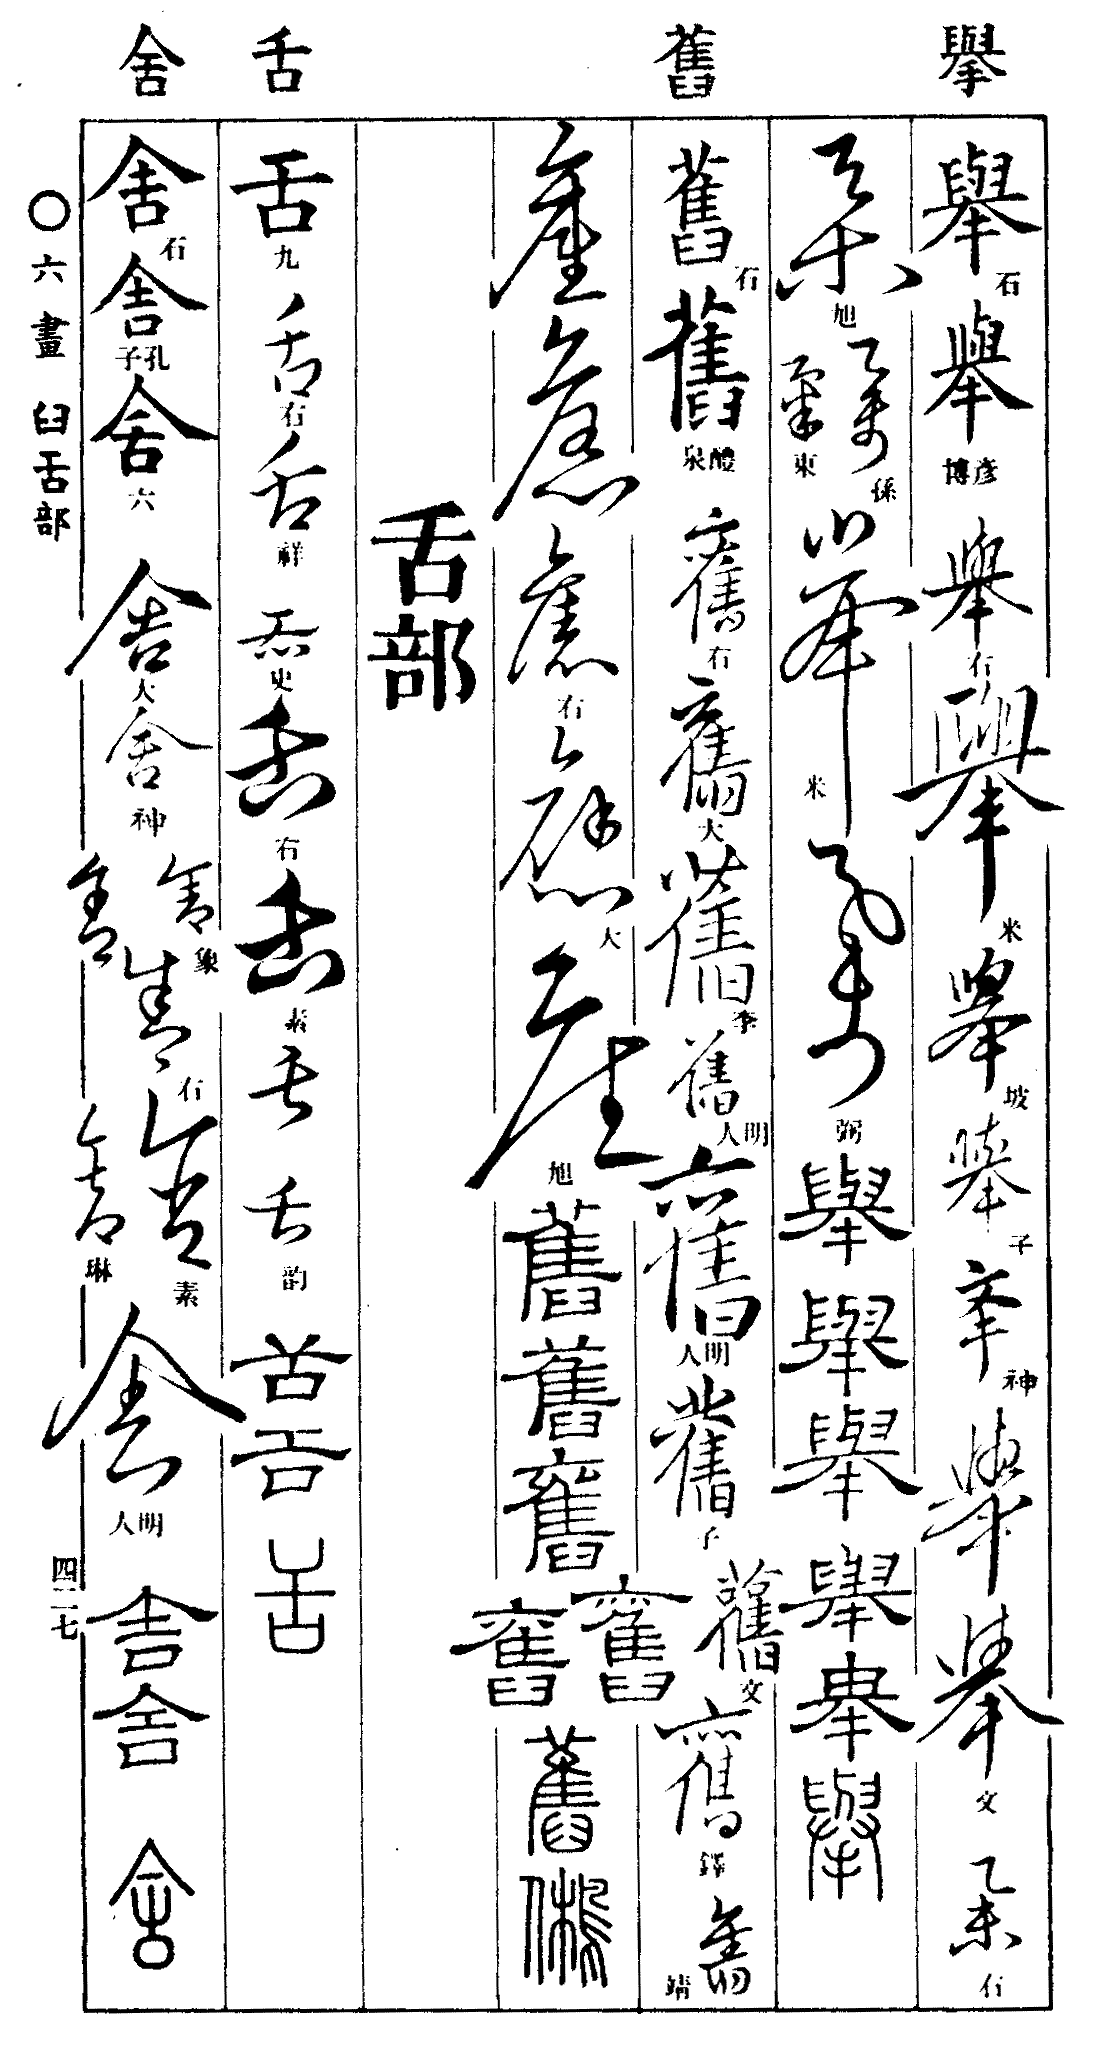 舉 舊 舌 舍
舉 石 舉 彥博 舉 右 舉 米 舉 坡 舉 子 舉 神 舉 舉 文 舉 右
舉 旭 舉 係 舉 東 舉 米 舉 弼 舉 舉 舉 舉 舉 舉
舊 石 舊 醴泉 舊 右 舊 大 舊 李 舊 明人 舊 明人 舊 子 舊 文 舊 鐸 舊 靖
舊 舊 舊 右 舊 大 舊 旭 舊 舊 舊 舊 舊 舊
舌部
舌 九 舌 右 舌 祥 舌 史 舌 右 舌 素 舌 舌 韵 舌 舌 舌
舍 石 舍 孔子 舍 六 舍 大 舍 神 舍 象 舍 舍 右 舍 素 舍 琳 舍 明人 舍 舍 舍
〇六畫 臼舌部
四二七